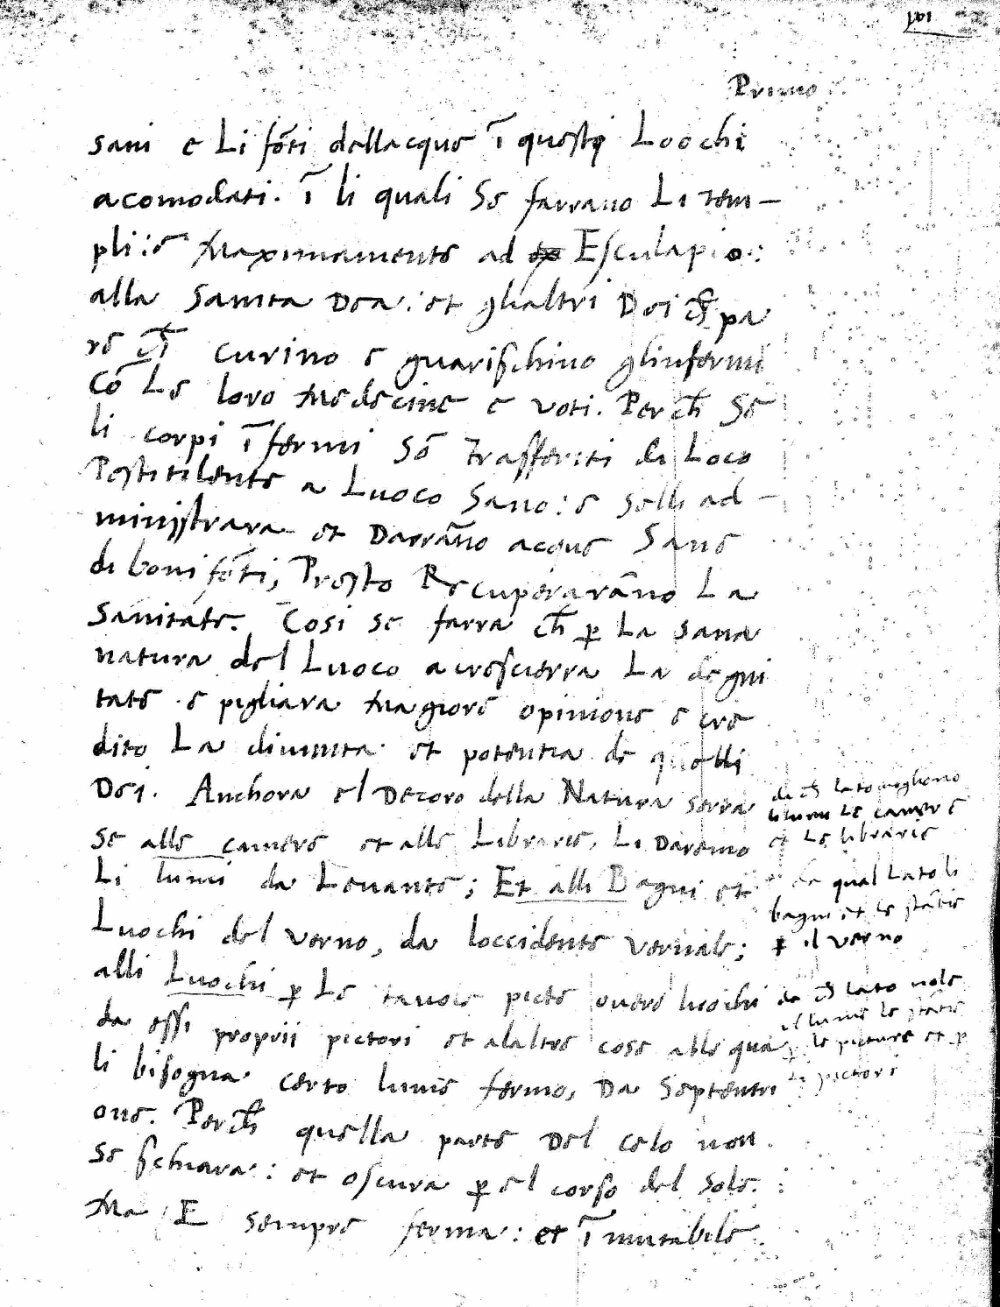 Primo
sani e Li fōti dellacque ī questi Loochi
acomodati. ī li quali Se farrano Li tem-
pli: e Maximamente ad Esculapio:
alla Sanita Dea: et glialtri Dei ch̄ pa
re ch̄ curino e guarischino glinfermi
cō Le loro Medecine e voti. Perch̄ Se
li corpi īfermi Sō trafferiti da Loco
Pestitilente a Luoco Sano: e selli ad-
ministrara et Darrāno acque Sane
di boni fōti, Presto Recuperarāno La
Sanitate. Cosi se farra ch̄ ꝑ La sana
natura del Luoco acrescierra La degni
tate e pigliara Magiore opinione e cre
dito La diuinita et potentia de quelli
Dei. Anchora el Decoro della Natura serra
Se alle camere et alle Librarie, Li Daremo
Li lumi da Leuante; Et alli Bagni et
Luochi del verno, da loccidente vernale;
alli Luochi ꝑ Le tauole picte ouero luochi
da essi proprii pictori et alaltre cose alle qua
li bisogna certo lume fermo, Da Septentri
one. Perch̄ quella parte Del celo non
Se schiara: et oscura ꝑ el corso del Sole:
Ma E sempre ferma: et īmutabile.
de ch̄ lato vogliono
li lumi Le camere
et Le librarie
da qual Lato li
bagni et le stātie
ꝑ il verno
da ch̄ lato vole
il lume le stātie
ꝑ le picture et ꝑ
li pictori